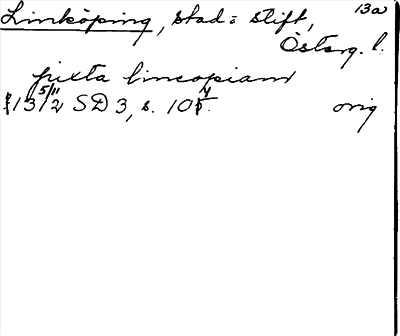 13a
Linköping, stad: stift,
Österg. l.
juxta lincopiam
1312 5/11 SD 3, s. 104 orig